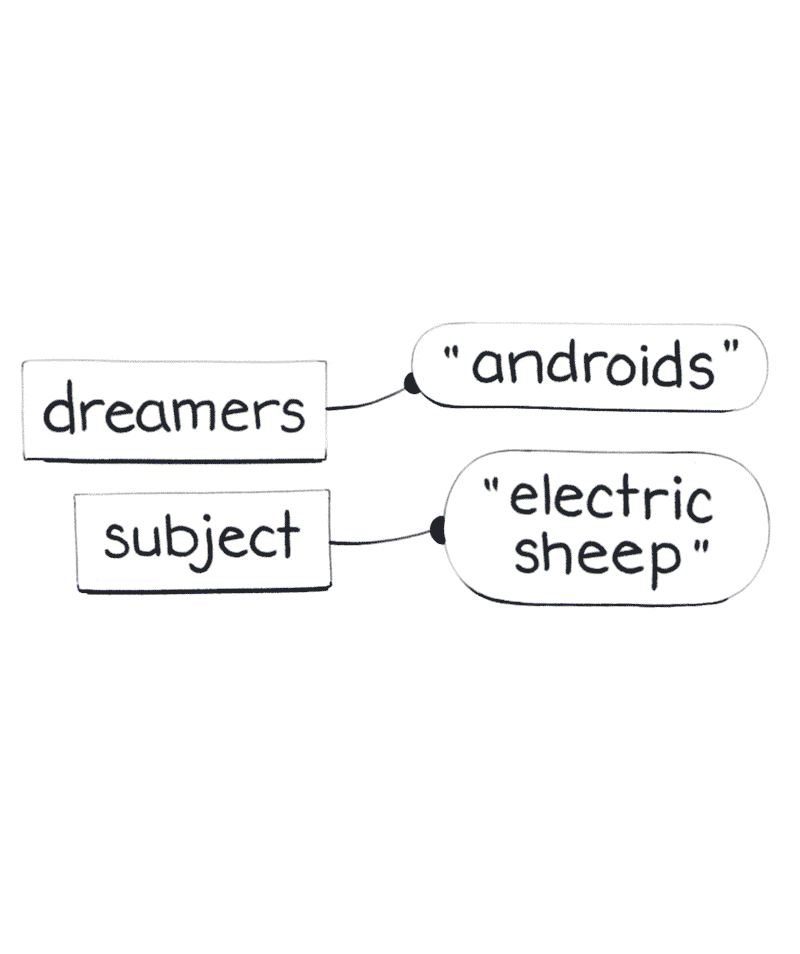 dreamers
"androids"
subject
"electric
sheep"